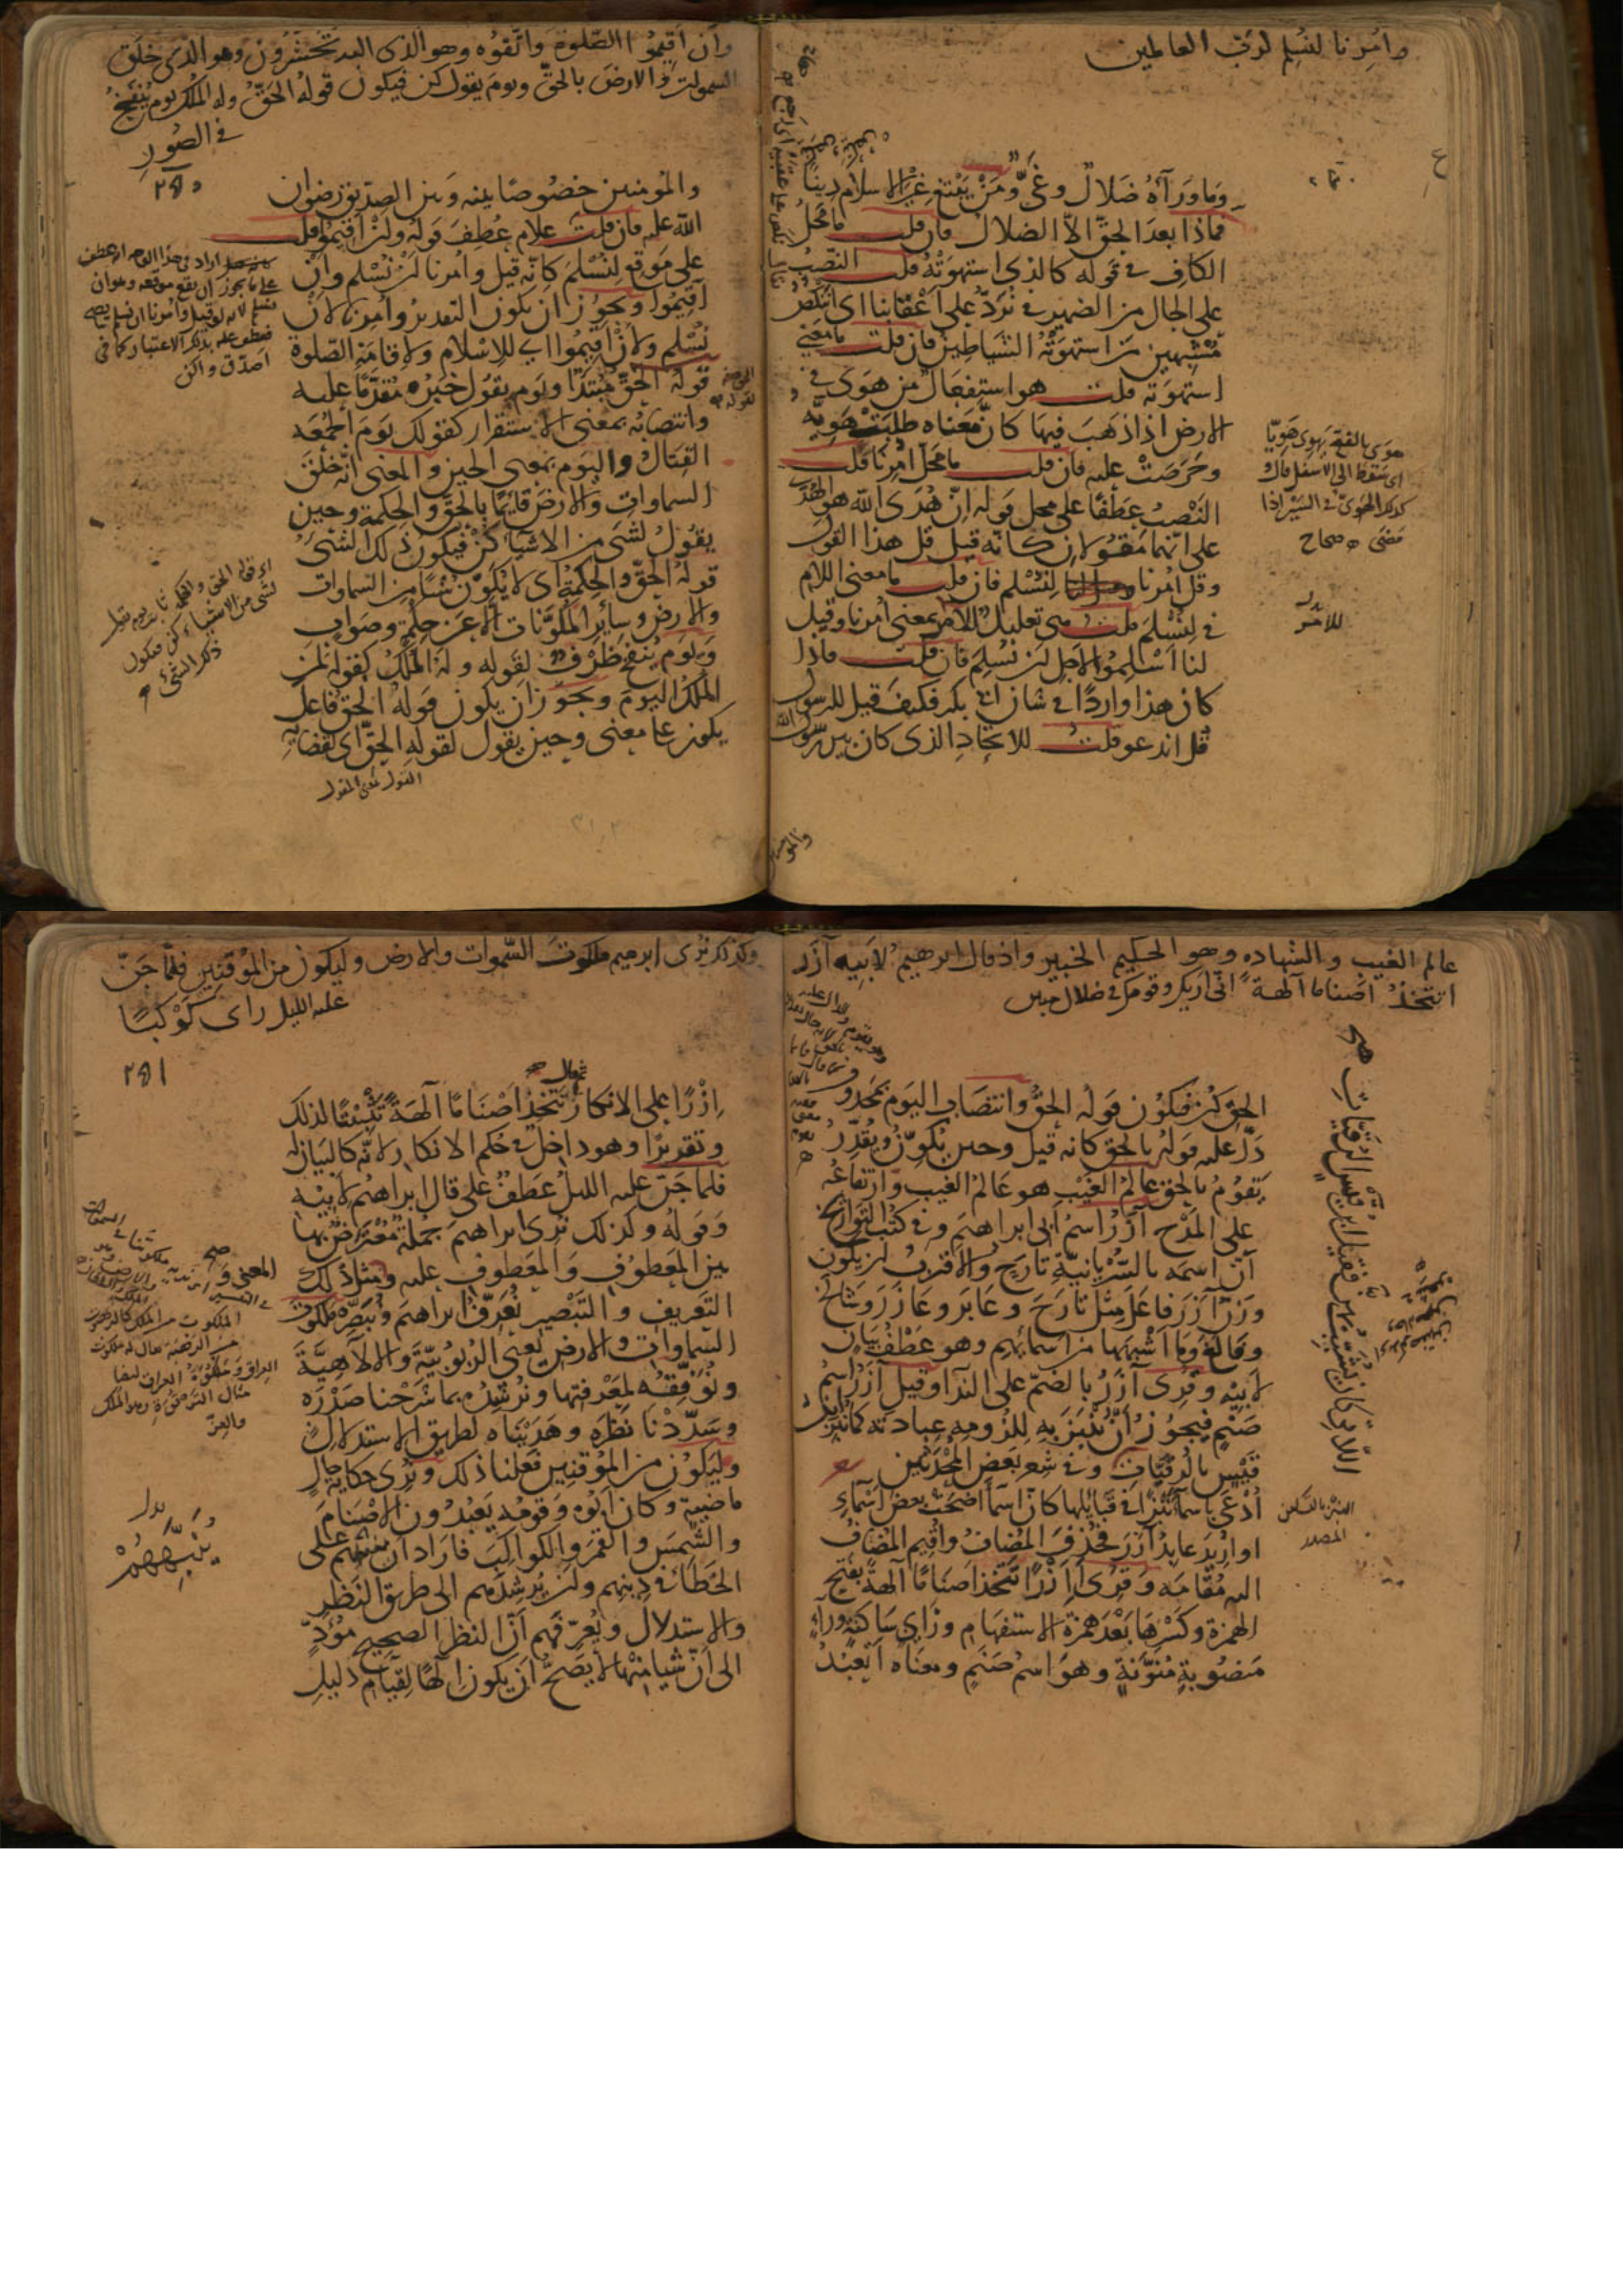 وامرنا لنسلم لرب العالمين
وما ورآه ضلال وغيّ ومن يبتغ غير الاسلام دينا
فماذا بعد الحق الا الضلال فان قلت ما محل
الكاف في قوله كالذي استهوته قلت النصب
على الحال من الضمير في نردّ على اعقابنا اى اننكص
مشبهين من استهوته الشياطين فان قلت ما معنى
استهوته قلت هو استفعال من هوى في
الارض اذا ذهب فيها كانّ معناه طلبت هويّه
وحرصت عليه فان قلت ما محل امرنا قلت
النصب عطفا على محل قوله انّ هدى الله هو الهدى
على انهما مقولان كانّه قيل قل هذا القول
وقل امرنا لنسلم فان قلت ما معنى اللام
في لنسلم قلت هى تعليل للامر بمعنى امرنا وقيل
لنا اسلموا لاجل ان نسلم فان قلت فاذا
كان هذا واردا في شان ابى بكر فكيف قيل للرسول
قل اندعو قلت للاتحاد الذى كان بين رسول الله
هوى بالفتح يهوى هويّا
اى سقط الى الاسفل قال
كذلك الهوىّ في السير اذا
مضى صحاح
بدل
للامر
وان اقيموا الصلوة واتقوه وهو الذى اليه تحشرون وهو الذى خلق
السموات والارض بالحق ويوم يقول كن فيكون قوله الحق وله الملك يوم ينفخ
في الصور
والمؤمنين خصوصا بينه وبين الصديق رضوان
الله عليه فان قلت علام عطف قوله وان اقيموا قلت
على موقع لنسلم كانه قيل وامرنا ان نسلم وان
اقيموا ويجوز ان يكون التقدير وامرنا لان
نسلم ولان اقيموا اى للاسلام ولاقامة الصلوة
قوله الحق مبتدا ويوم يقول خبره مقدما عليه
وانتصابه بمعنى الاستقرار كقولك يوم الجمعه
القتال واليوم بمعنى الحين والمعنى انه خلق
السماوات والارض قائما بالحق والحكمة وحين
يقول لشى من الاشيا كن فيكون ذلك الشى
قوله الحق والحكمة اى لا يكوّن شيا من السماوات
والارض وساير المكوّنات الا عن حكمة وصواب
ويوم ينفخ ظرف لقوله وله الملك كقوله لمن
الملك اليوم ويجوز ان يكون قوله الحق فاعل
يكون على معنى وحين يقول لقوله الحق اى لقضايه
عالم الغيب والشهاده وهو الحكيم الخبير واذ قال ابرهيم لابيه آزر
اتتخذ اصناما آلهة انى اريك وقومك في ضلال مبين
الحق كن فيكون قوله الحق وانتصاب اليوم بمحذوف
دلّ عليه قوله بالحق كانه قيل وحين يكوّن ويقدّر
يقوم بالحق عالم الغيب هو عالم الغيب وارتفاعه
على المدح آزر اسم ابى ابراهيم وفي كتب التواريخ
انّ اسمه بالسريانية تارح والاقرب ان يكون
وزن آزر فاعل مثل تارح وعابر وعازر وشالخ
وفالغ وما اشبهها من اسمائهم وهو عطف بيان
لابيه وقرى آزر بالضم على الندا وقيل آزر اسم
صنم فيجوز ان ينبز به للزومه عبادته كما نبز ابن
قيس بالرقيات وفي شعر بعض المحدثين
ادعى باسما نبزا في قبايلها كانّ اسما اضحت بعض اسماءى
او اريد عابد آزر فحذف المضاف واقيم المضاف
اليه مقامه وقرى اازرا تتخذ اصناما آلهة بفتح
الهمزة وكسرها بعد همزة الاستفهام وزاى ساكنة ورآء
منصوبة منوّنة وهو اسم صنم ومعناه اتعبد
النبز بالتسكين
المصدر
وكذلك نرى ابرهيم ملكوت السموات والارض وليكون من الموقنين فلما جنّ
عليه الليل راى كوكبا
ثم قال
ازرا على الانكار تتخذ اصناما آلهة تثبيتا لذلك
وتقريرا وهو داخل في حكم الانكار لانه كالبيان له
فلما جنّ عليه الليل عطف على قال ابراهيم لابيه
وقوله وكذلك نرى ابراهيم جملة معترض بها
بين المعطوف والمعطوف عليه ومثل ذلك
التعريف والتبصير نعرّف ابراهيم ونبصّره ملكوت
السماوات والارض يعنى الربوبية والالاهية
ونوفقه لمعرفتها ونرشده بما شرحنا صدره
وسدّدنا نظره وهديناه لطريق الاستدلال
وليكون من الموقنين فعلنا ذلك ونرى حكاية حال
ماضية وكان ابوه وقومه يعبدون الاصنام
والشمس والقمر والكواكب فاراد ان ينبّههم على
الخطا في دينهم وان يرشدهم الى طريق النظر
والاستدلال ويعرّفهم انّ النظر الصحيح مؤدّ
الى انّ شيا منها لا يصح ان يكون الها لقيام دليل
بدل
يُنَبِّهَهُمْ